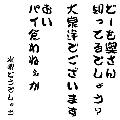 どーも奥さん
知ってるでしょう?
大泉洋でございます
おい
パイ食わねぇか
水曜どうでしょう